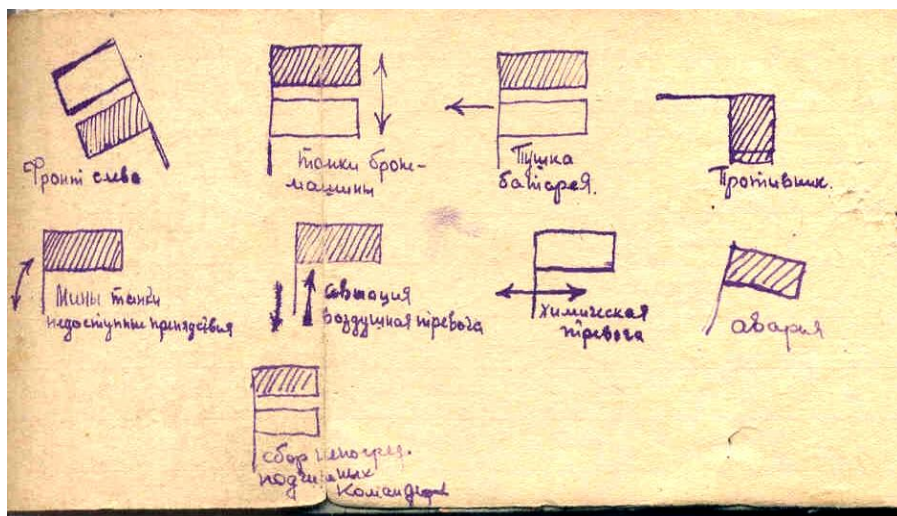 Фронт слева
танки броне-
машины
Пушка
батарея.
Противник.
Мины танки
недоступные препядствия
Авиация
воздушная тревога
химическая
тревога
авария
сбор непосред.
подчинённых
Командиров